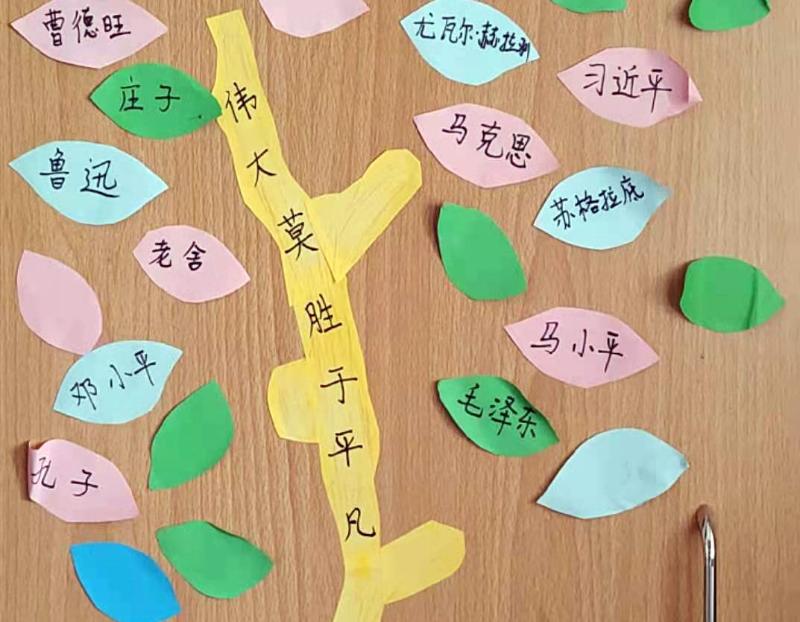 曹德旺
庄子
鲁迅
老舍
邓小平
孔子
伟大莫胜于平凡
尤瓦尔·赫拉利
习近平
马克思
苏格拉底
马小平
毛泽东